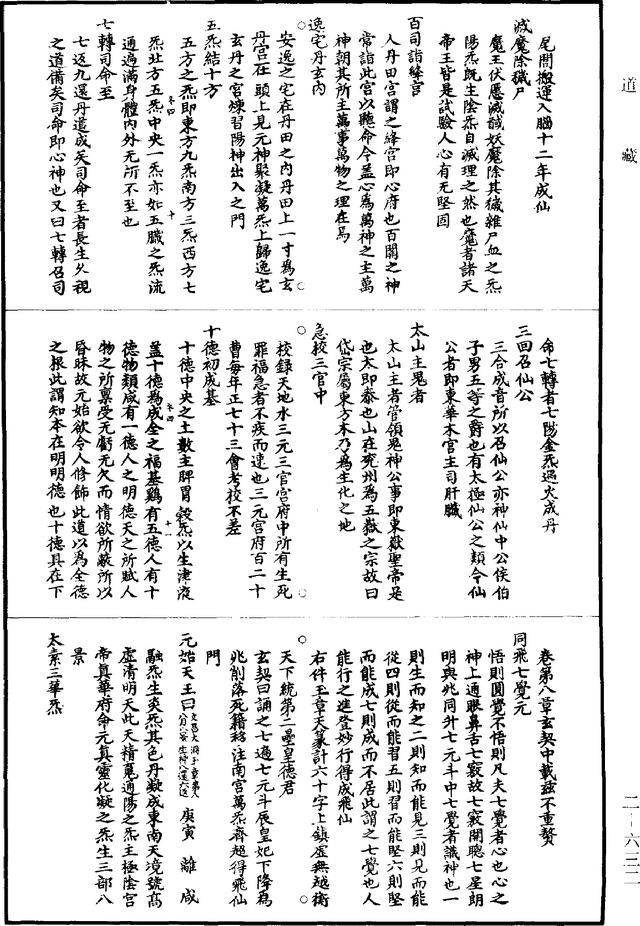 道藏
尾閭搬運入腦十二年成仙
滅魔除穢尸
魔王伏慝滅馘妖魔除其穢雜尸血之炁
陽炁旣生陰炁自滅理之然也魔者諸天
帝王皆是試驗人心有无堅固
百司詣絳宫
人丹田宫謂之絳宫即心府也百關之神
常詣此宫以聽命令蓋心為萬神之主萬
神朝其所主萬事萬物之理在焉
逸宅丹玄內
安逸之宅在丹田之內丹田上一寸為玄
丹宫在頭上見元神聚凝萬炁上歸逸宅
玄丹之宫煉習陽神出入之門
五炁結十方
五方之炁即東方九炁南方三炁西方七
炁北方五炁中央一炁亦如五臟之炁流
通遍滿身體內外无所不至也
七轉司命至
七返九還丹道成矣司命至者長生久視
之道備矣司命即心神也又曰七轉召司
命七轉者七陽金炁遇火成丹
三回召仙公
三合成音所以召仙公亦神仙中公侯伯
子男五等之爵也有太極仙公之類今仙
公者即東華木宫主司肝臟
太山主鬼者
太山主者管領鬼神公事即東嶽聖帝是
也太即泰也山在兖州為五嶽之宗故曰
岱宗屬東方木乃為生化之地
急校三官中
校録天地水三元三官宫府中所有生死
罪福急者不疾而速也三元宫府百二十
曹每年正七十三會考校不差
十德初成基
十德中央之土數主脾胃穀炁以生津液
蓋十德為成全之福基鷄有五德人有十
德物類咸有一德人之明德天之所賦人
物之所禀受无虧无欠而情欲所蔽所以
昏昧故元始欲令人修飾此道以為全德
之根此謂知本在明明德也十德具在下
卷第八章玄契中載兹不重贅
同飛七覺元
悟則圓覺不悟則凡夫七覺者心也心之
神上通眼鼻舌七竅故七竅開聰七星朗
明與兆同升七元斗中七覺者識神也一
則生而知之二則知而能見三則見而能
從四則從而能習五則習而能堅六則堅
而能成七則成而不居此謂之七覺也人
能行之進登妙行得成飛仙
右件玉章天篆計六十字上鎮虛無越衡
天下統第二壘皇德君
玄契曰誦之七遍七元斗辰皇妃下降為
兆削落死籍移注南宫萬炁齊超得飛仙
門
元始天王曰庚寅　離　咸
融炁生炎炁其色丹凝成東南天境號髙
虛清明天此天精蒐通陽之炁主極陰宫
帝真華府命元真靈化凝之炁生三部八
景
太素三華炁
二一六三二